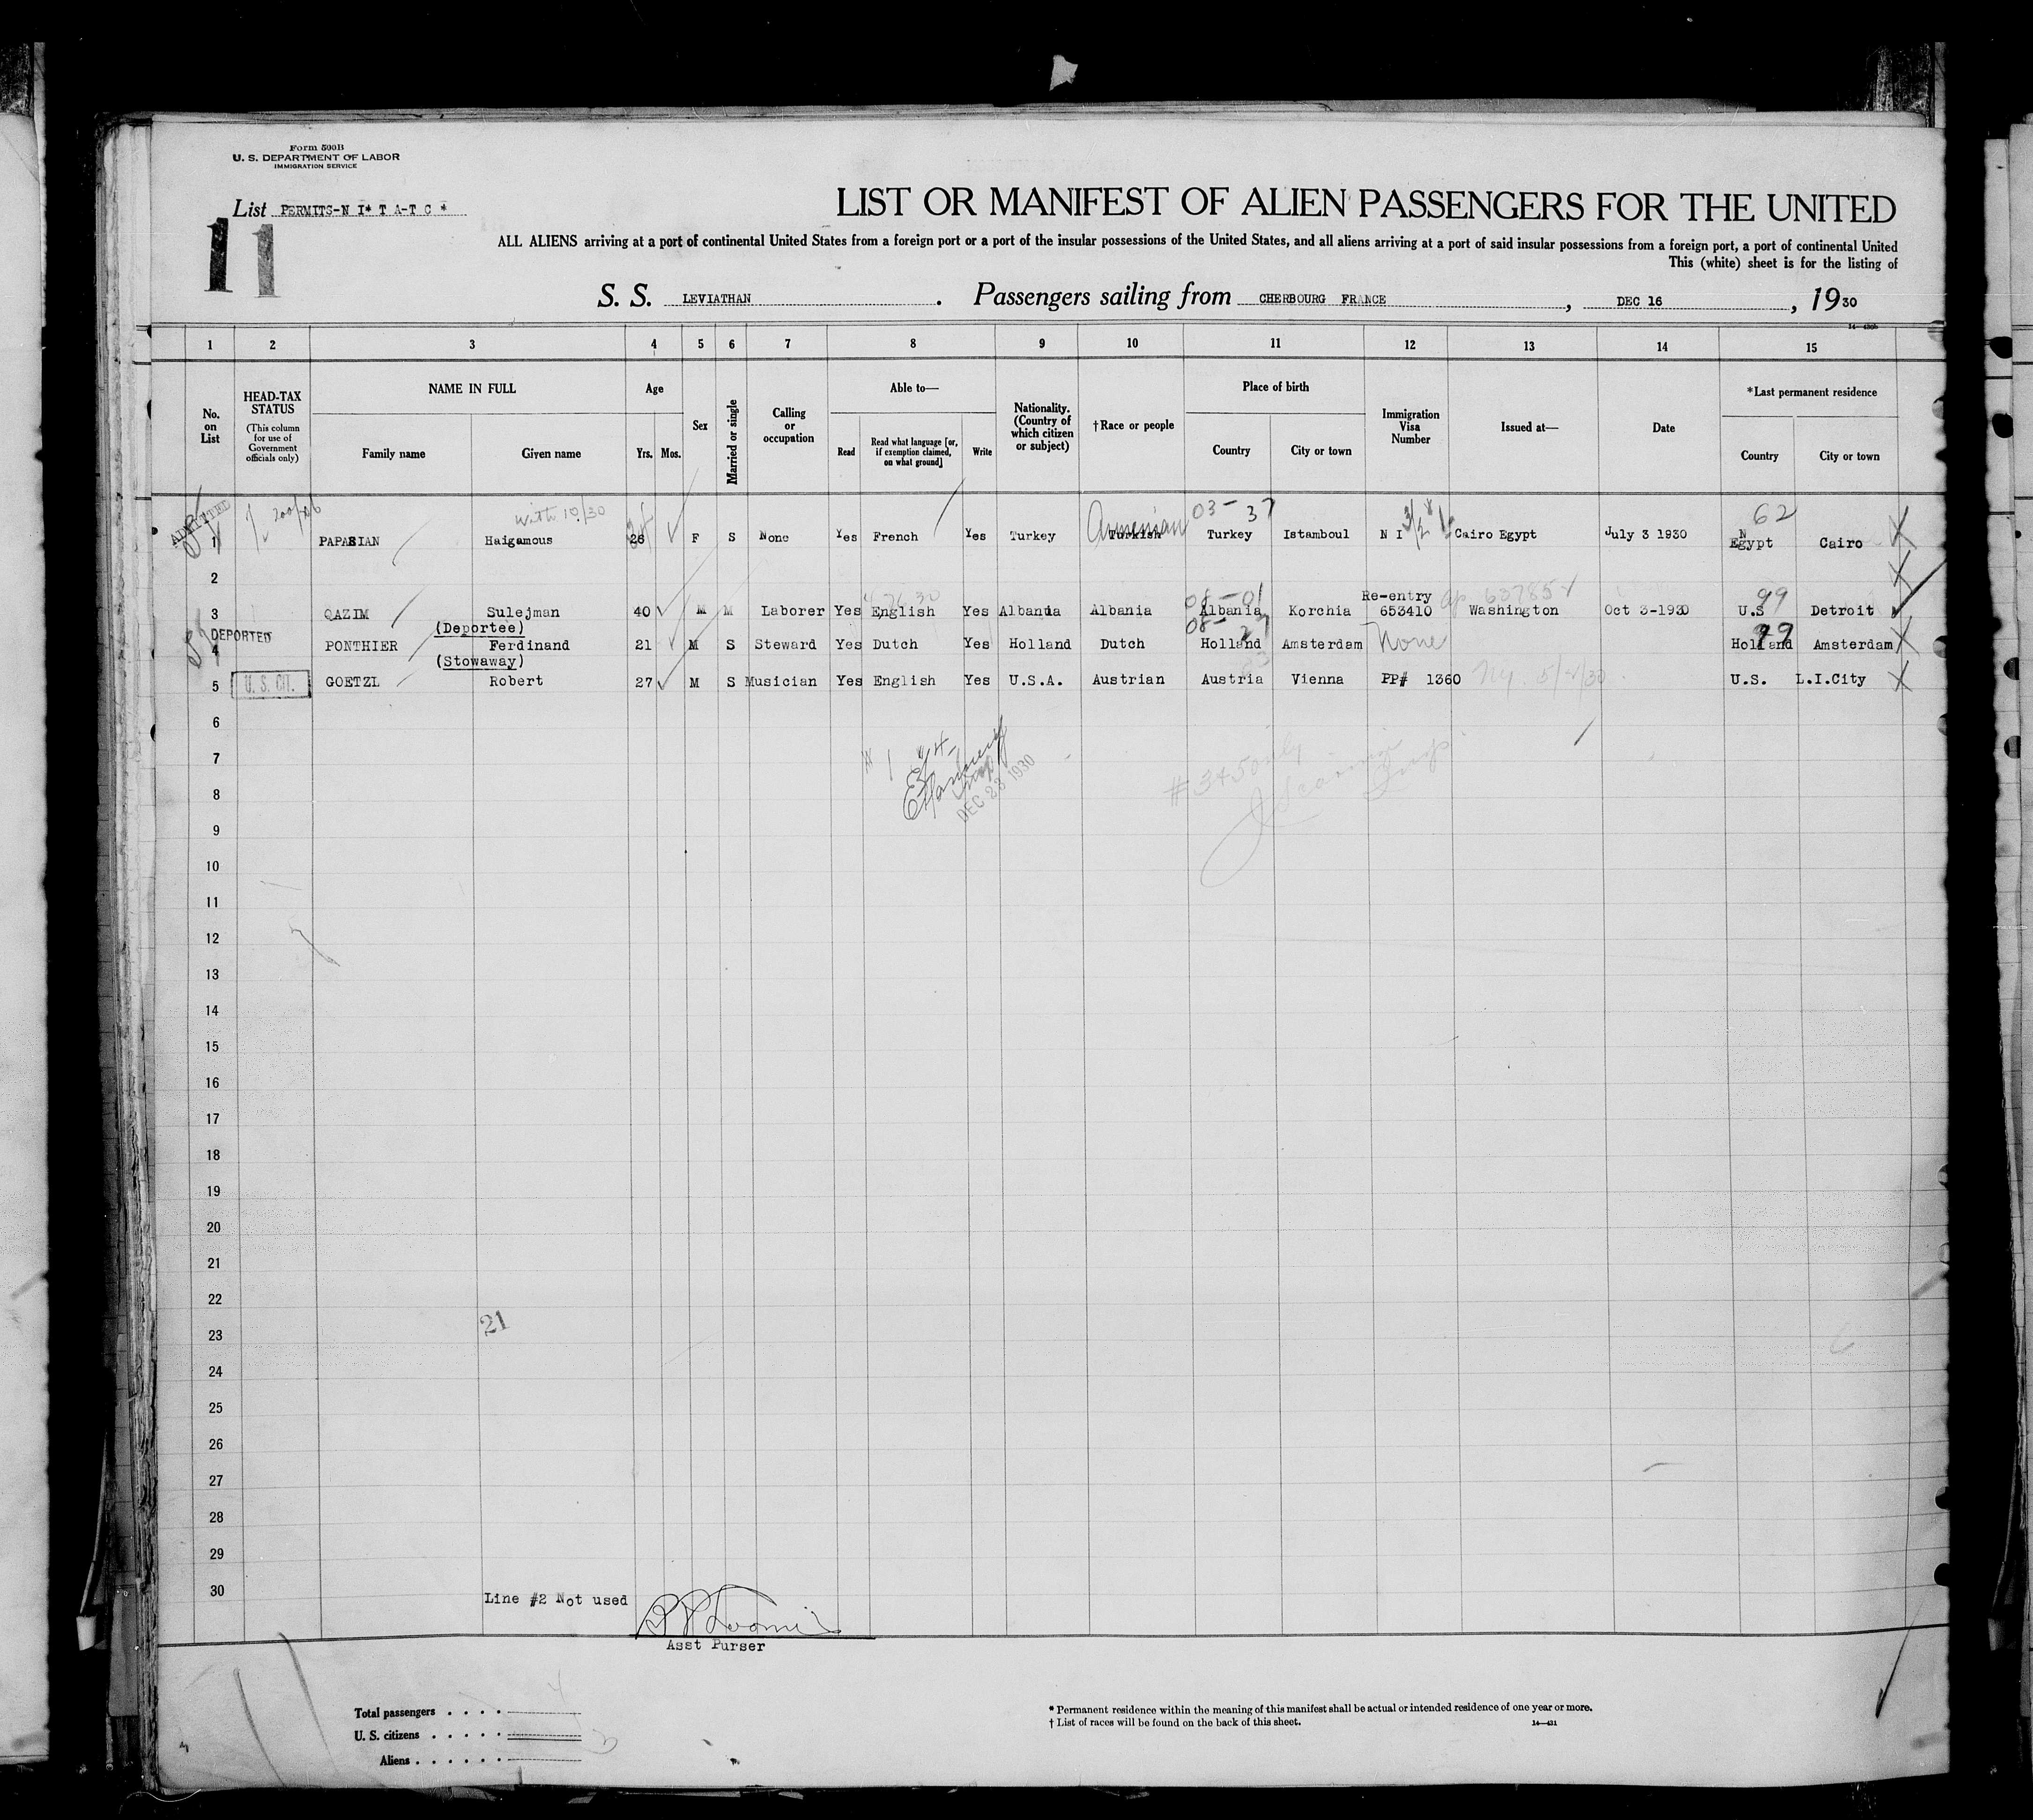 Form 500B
U. S. DEPARTMENT OF LABOR
IMMIGRATION SERVICE
List PERMITS-N I* T A-T C *
11
LIST OR MANIFEST OF ALIEN PASSENGERS FOR THE UNITED
ALL ALIENS arriving at a port of continental United States from a foreign port or a port of the insular possessions of the United States, and all aliens arriving at a port of said insular possessions from a foreign port, a port of continental United
This (white) sheet is for the listing of
S. S. LEVIATHAN . Passengers sailing from CHERBOURG FRANCE , DEC 16 , 1930
1 2 3 4 5 6 7 8 9 10 11 12 13 14 15
No. on List
HEAD-TAX STATUS (This column for use of Government officials only)
NAME IN FULL
Family name Given name
Age
Yrs. Mos.
Sex
Married or single
Calling or occupation
Able to—
Read Read what language [or, if exemption claimed, on what ground] Write
Nationality. (Country of which citizen or subject)
†Race or people
Place of birth
Country City or town
Immigration Visa Number
Issued at—
Date
*Last permanent residence
Country City or town
ADMITTED with 10/30 03- 37 62
1 PAPAZIAN Haigamous 26 F S None Yes French Yes Turkey Turkish Armenian Turkey Istamboul N I Cairo Egypt July 3 1930 Egypt Cairo
2
08-01 Re-entry 637854 99
3 QAZIM Sulejman 40 M M Laborer Yes English Yes Albania Albania Albania Korchia 653410 Washington Oct 3-1930 U.S Detroit
DEPORTED (Deportee) 08-
4 PONTHIER Ferdinand 21 M S Steward Yes Dutch Yes Holland Dutch Holland Amsterdam None Holland Amsterdam 99
(Stowaway)
5 U. S. CIT. GOETZL Robert 27 M S Musician Yes English Yes U.S.A. Austrian Austria Vienna PP# 1360 Ny. 5/4/30 U.S. L.I.City
6
7
8 DEC 23 1930
9
10
11
12
13
14
15
16
17
18
19
20
21
22
21
23
24
25
26
27
28
29
30 Line #2 Not used
Asst Purser
Total passengers
U. S. citizens
Aliens
* Permanent residence within the meaning of this manifest shall be actual or intended residence of one year or more.
† List of races will be found on the back of this sheet.
14—431